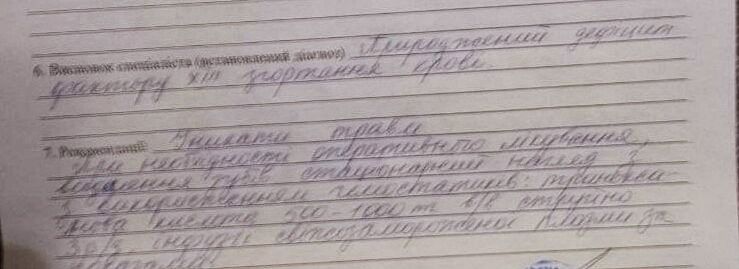 6. Висновок спеціаліста (встановлений діагноз) Вроджений дефіцит
фактору XIII згортання крові.
7. Рекомендації: Уникати травм
При необхідності оперативного лікування,
видалення зубів стаціонарний нагляд
з використанням гемостатиків: транекса-
мова кислота 500-1000 в/в струйно
інфузії свіжозамороженої плазми за